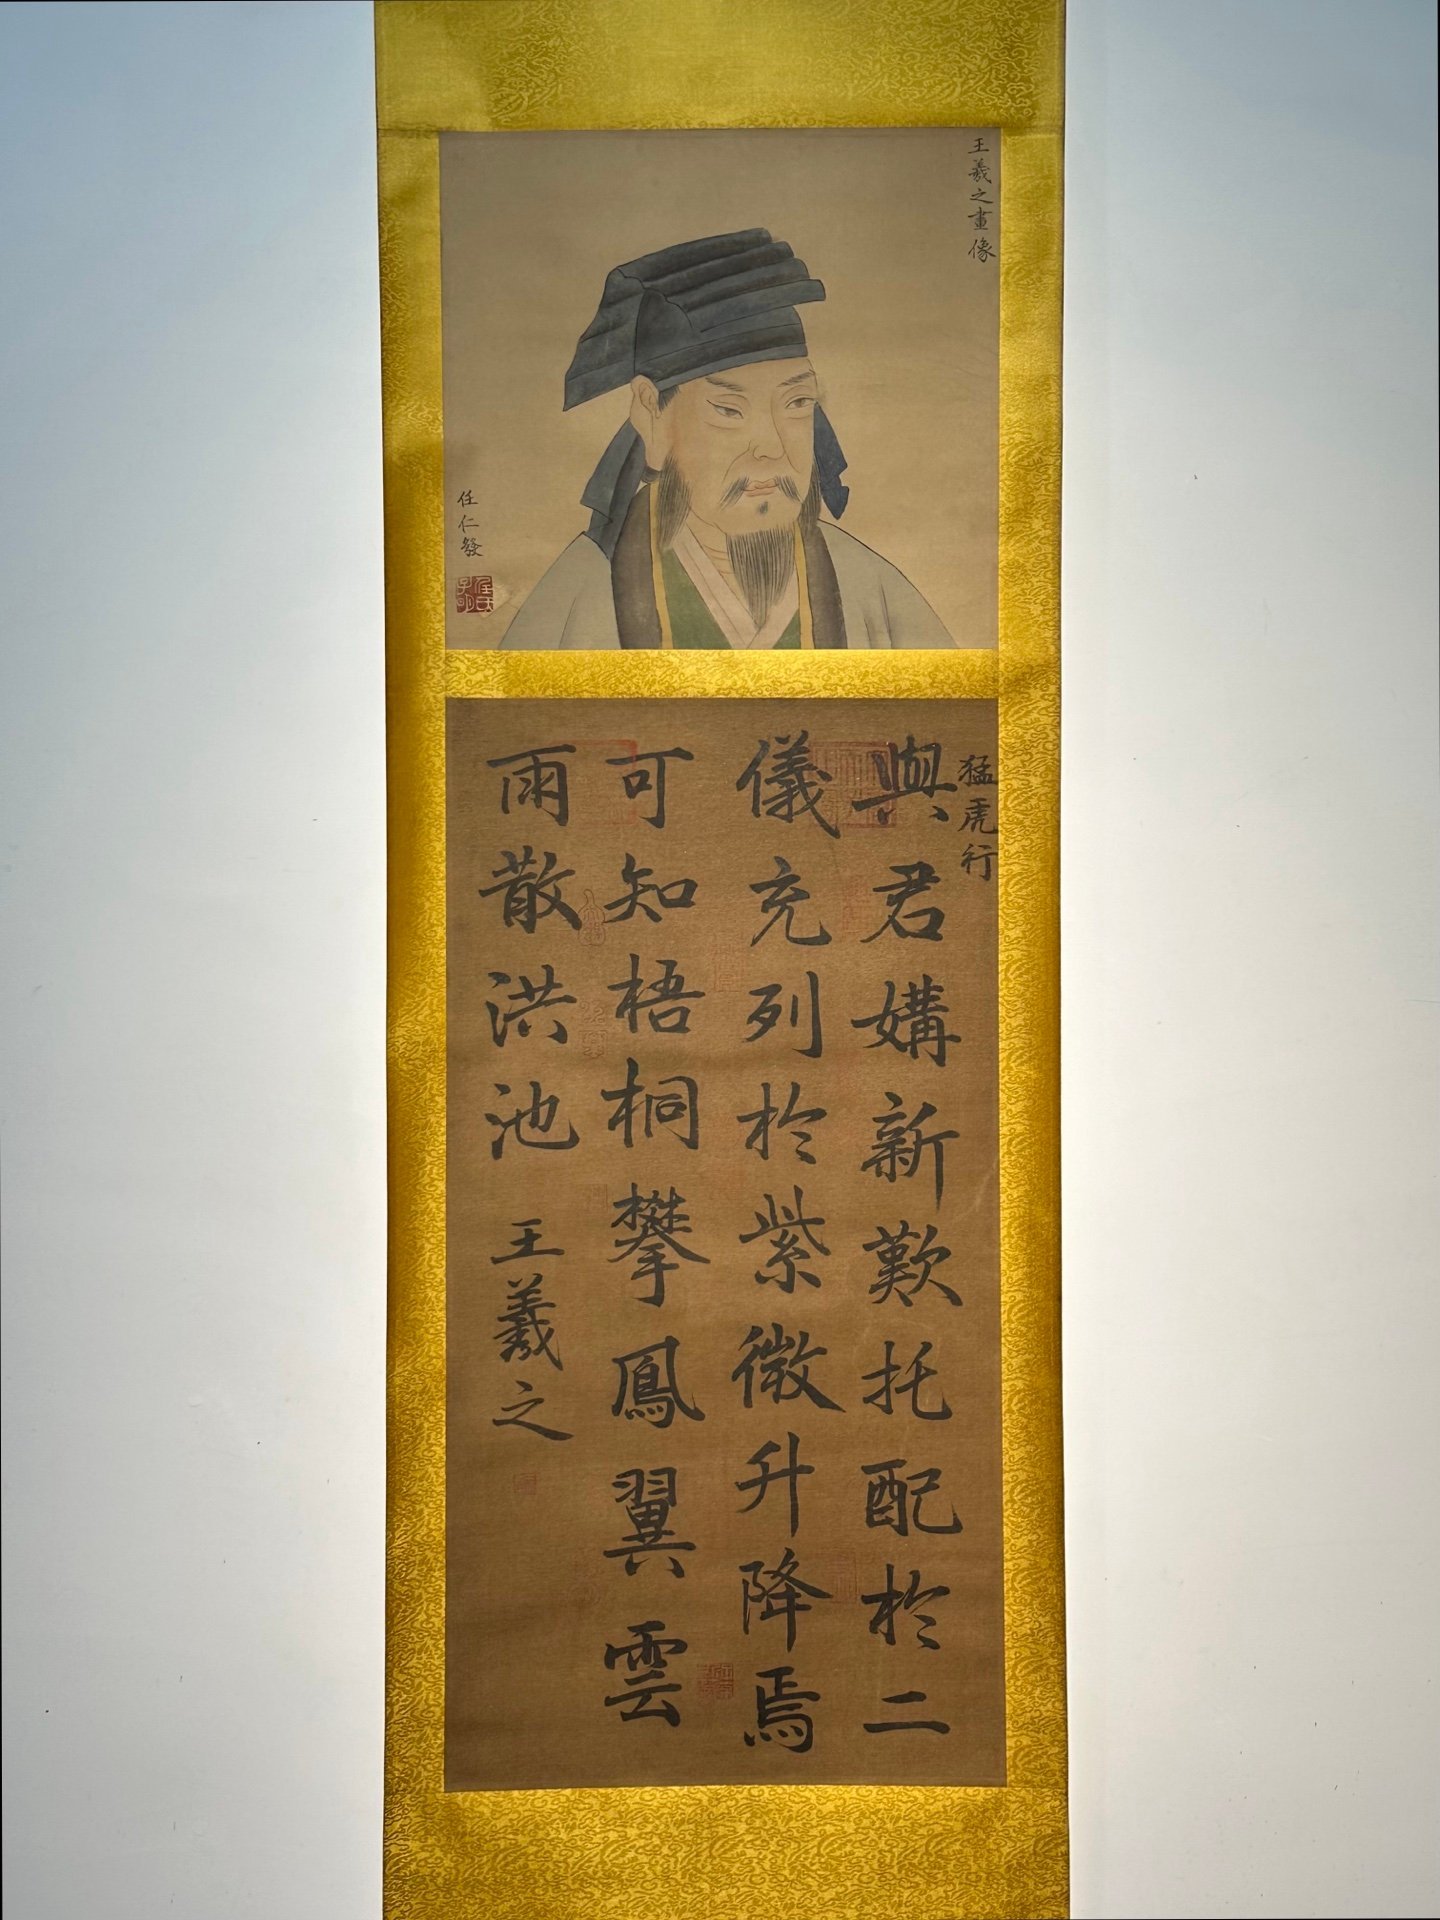 王羲之畫像
任仁發
猛虎行
與君媾新歎托配於二
儀充列於紫微升降焉
可知梧桐攀鳳翼雲
雨散洪池
王羲之